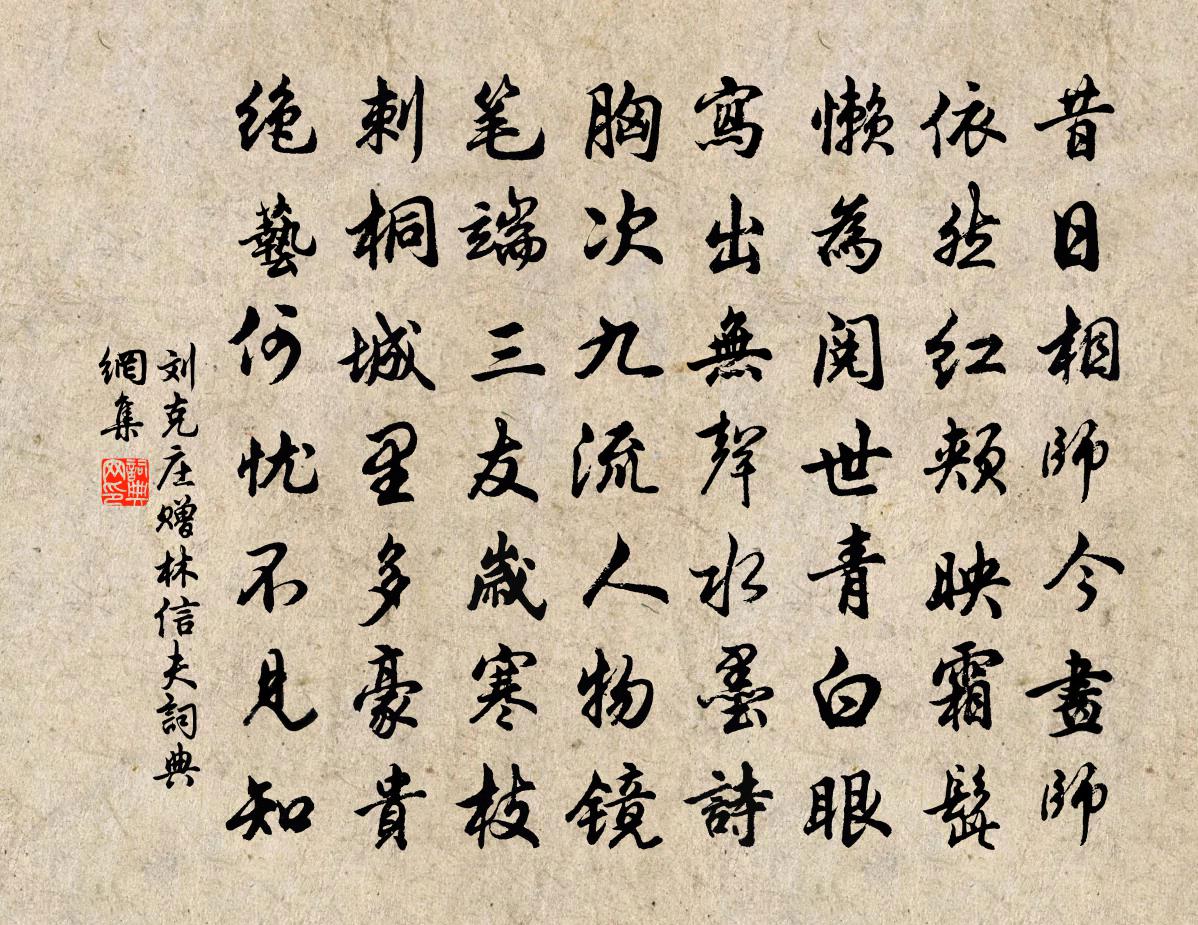 昔日相師今畫師
依然红頰映霜髭
懒為閱世青白眼
寫出無聲水墨詩
胸次九流人物镜
笔端三友歲寒枝
刺桐城里多豪貴
绝藝何忧不見知
刘克庄赠林信夫詞典
網集
詞典
网印